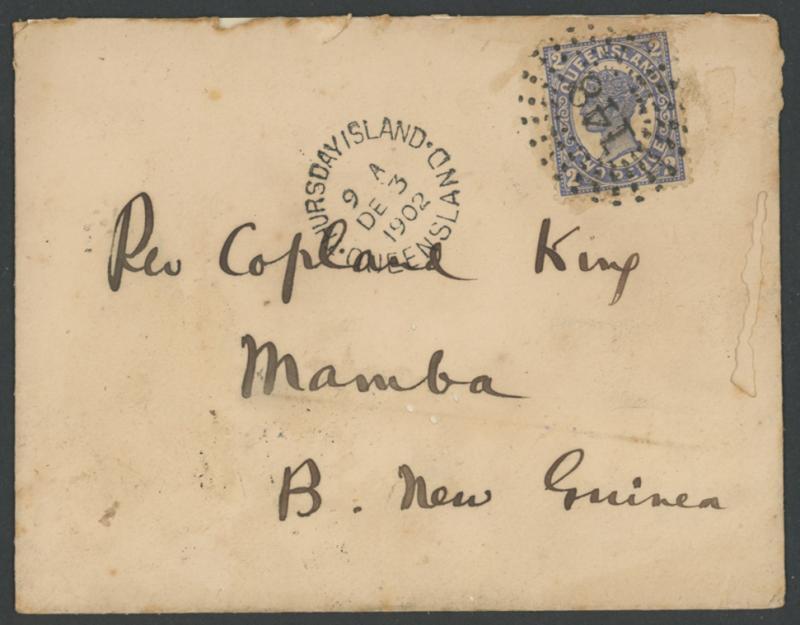 THURSDAY ISLAND
9 A
DE 3
1902
QUEENSLAND
2 2
QUEENSLAND
148
TWO PENCE
2 2
Rev Copland King
Mamba
B. New Guinea